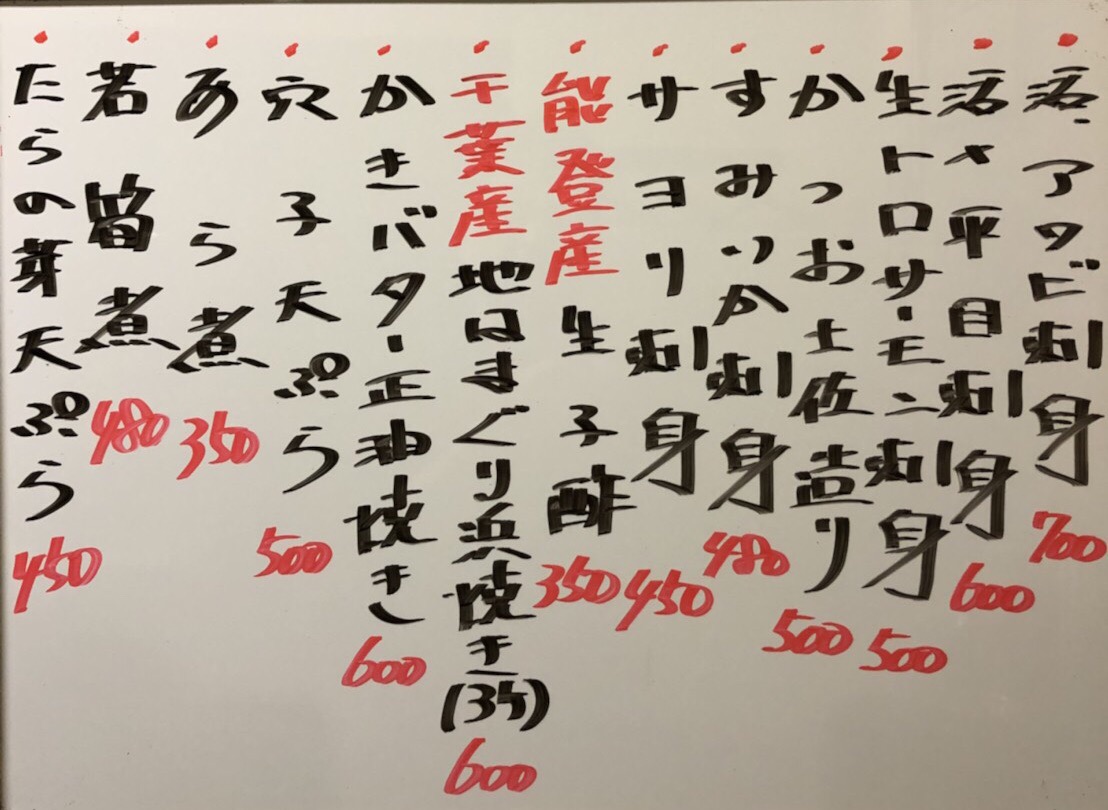 活アワビ刺身 700
活〆平目刺身 600
生トロサーモン刺身 500
かつお土佐造り 500
すみいか刺身 480
サヨリ刺身 450
能登産 生子酢 350
千葉産 地はまぐり浜焼き(3ケ) 600
かきバター正油焼き 600
穴子天ぷら 500
あら煮 350
若筍煮 480
たらの芽天ぷら 450